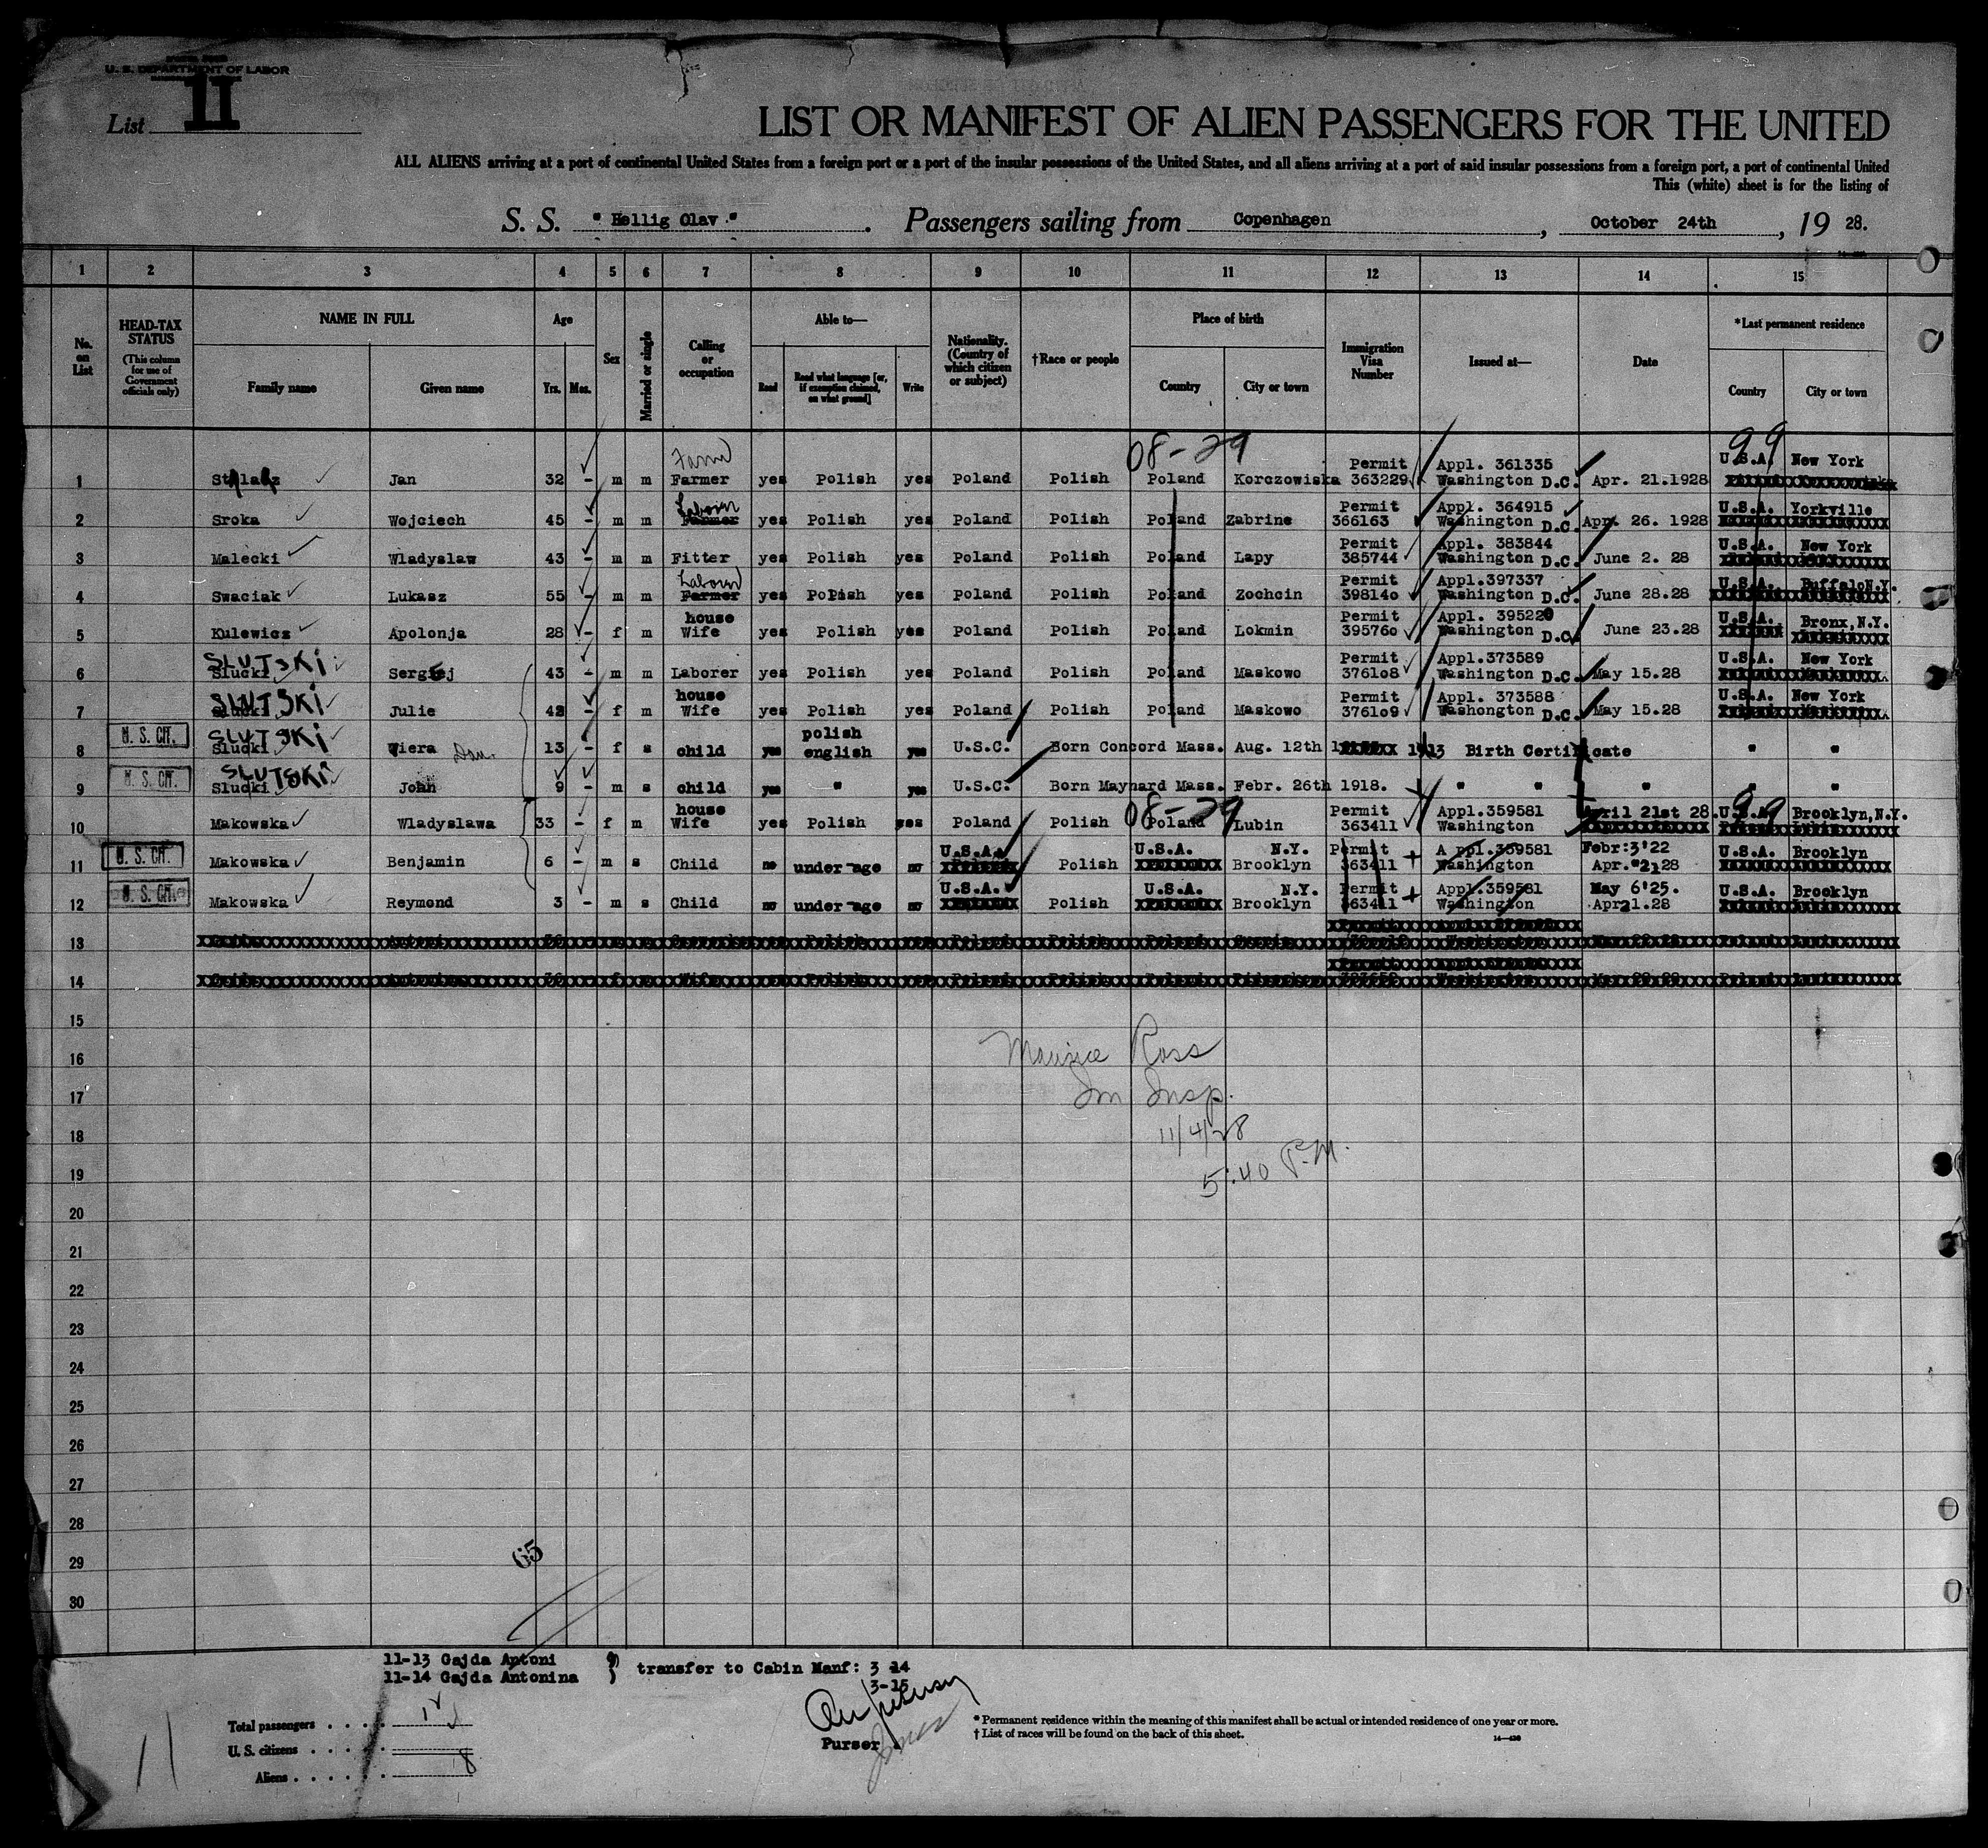 U. S. DEPARTMENT OF LABOR
List 11
LIST OR MANIFEST OF ALIEN PASSENGERS FOR THE UNITED
ALL ALIENS arriving at a port of continental United States from a foreign port or a port of the insular possessions of the United States, and all aliens arriving at a port of said insular possessions from a foreign port, a port of continental United
This (white) sheet is for the listing of
S. S. "Hellig Olav" . Passengers sailing from Copenhagen , October 24th , 19 28.
1 2 3 4 5 6 7 8 9 10 11 12 13 14 15
No. on List
HEAD-TAX STATUS (This column for use of Government officials only)
NAME IN FULL Family name Given name
Age Yrs. Mos.
Sex
Married or single
Calling or occupation
Able to— Read Read what language [or, if exemption claimed, on what ground] Write
Nationality. (Country of which citizen or subject)
†Race or people
Place of birth Country City or town
Immigration Visa Number
Issued at—
Date
*Last permanent residence Country City or town
08-29 99
1 Jan 32 - m m Farmer yes Polish yes Poland Polish Poland Korczowiska Permit 363229 Appl. 361335 Washington D.C. Apr. 21.1928 U.S.A. New York
2 Sroka Wojciech 45 - m m Laborer Farmer yes Polish yes Poland Polish Poland Zabrine Permit 366163 Appl. 364915 Washington D.C. Apr. 26. 1928 U.S.A. Yorkville
3 Malecki Wladyslaw 43 - m m Fitter yes Polish yes Poland Polish Poland Lapy Permit 385744 Appl. 383844 Washington D.C. June 2. 28 U.S.A. New York
4 Swaciak Lukasz 55 - m m Farmer yes Polish yes Poland Polish Poland Zochcin Permit 398140 Appl.397337 Washington D.C. June 28.28 U.S.A. Buffalo N.Y.
5 Kulewicz Apolonja 28 - f m house Wife yes Polish yes Poland Polish Poland Lokmin Permit 395760 Appl. 395220 Washington D.C. June 23.28 U.S.A. Bronx, N.Y.
6 SLUTSKI Slucki Sergej 43 - m m Laborer yes Polish yes Poland Polish Poland Maskowo Permit 376108 Appl.373589 Washington D.C. May 15.28 U.S.A. New York
7 SLUTSKI Slucki Julie 42 - f m house Wife yes Polish yes Poland Polish Poland Maskowo Permit 376109 Appl. 373588 Washongton D.C. May 15.28 U.S.A. New York
8 U. S. CIT. SLUTSKI Slucki Wiera 13 - f s child yes polish english yes U.S.C. Born Concord Mass. Aug. 12th 1913 Birth Certificate " "
9 U. S. CIT. SLUTSKI Slucki John 9 - m s child yes " yes U.S.C. Born Maynard Mass. Febr. 26th 1918. " " " "
08-29 99
10 Makowska Wladyslawa 33 - f m house Wife yes Polish yes Poland Polish Poland Lubin Permit 363411 Appl.359581 Washington April 21st 28. U.S.A. Brooklyn, N.Y.
11 U. S. CIT. Makowska Benjamin 6 - m s Child no under age no U.S.A. Polish U.S.A. N.Y. Brooklyn Permit 363411 Appl.359581 Washington Febr:3'22 Apr. 21 28 U.S.A. Brooklyn
12 U. S. CIT. Makowska Reymond 3 - m s Child no under age no U.S.A. Polish U.S.A. N.Y. Brooklyn Permit 363411 Appl.359581 Washington May 6'25. Apr21.28 U.S.A. Brooklyn
13
14
15
16
Maurice Ross
17
Im Insp.
18
11/4/28
19
5:40 P.M.
20
21
22
23
24
25
26
27
28
29
65
30
11-13 Gajda Antoni
11-14 Gajda Antonina } transfer to Cabin Manf: 3 14
3-15
Total passengers . . . .
U. S. citizens . . . . .
Aliens . . . . . . 8
11
Purser
* Permanent residence within the meaning of this manifest shall be actual or intended residence of one year or more.
† List of races will be found on the back of this sheet.